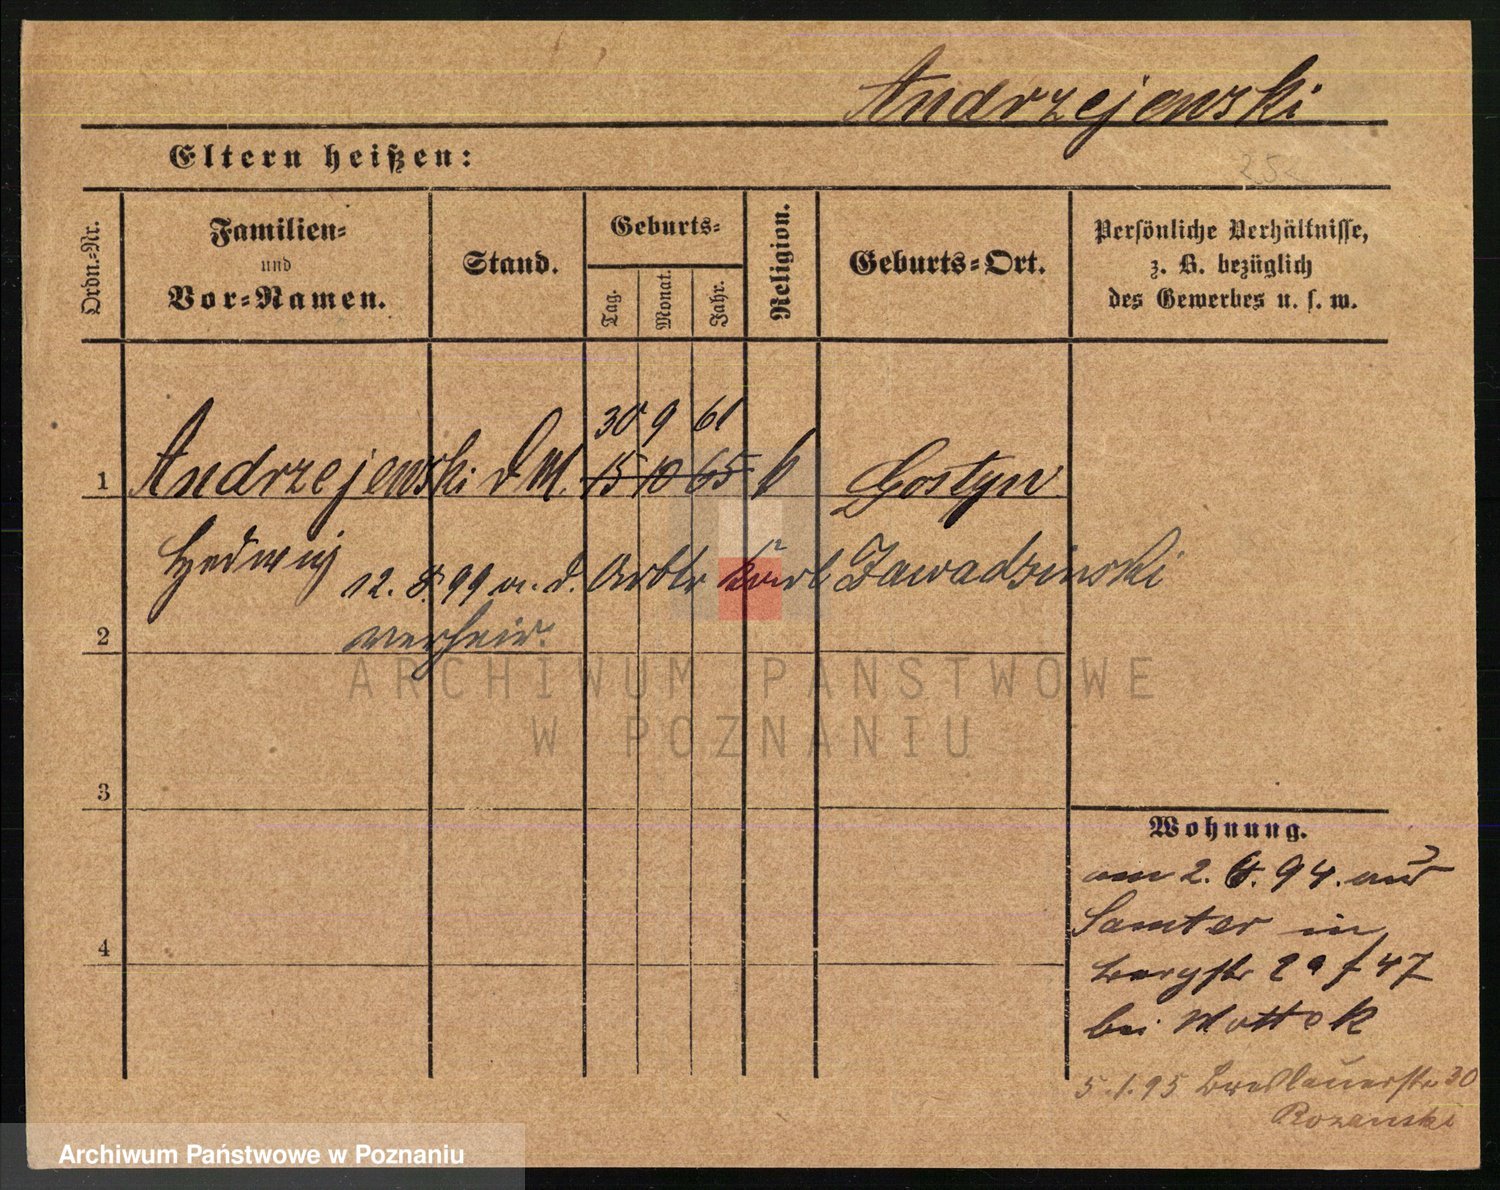 Andrzejewski
Eltern heißen:
252
Ordn.-Nr.
Familien-
und
Vor-Namen.
Stand.
Geburts-
Tag.
Monat.
Jahr.
Religion.
Geburts-Ort.
Persönliche Verhältnisse,
z. B. bezüglich
des Gewerbes u. s. w.
30 9 61
1 Andrzejewski d M. 15 10 65 k Gostyn
Hedwig
12. 8. 99 m. d. Arbtr Karl Zawadzinski
2 verheir.
ARCHIWUM PAŃSTWOWE
W POZNANIU
3
4
Wohnung.
am 2. 6. 94. aus
Samter in
Bergstr 47
bei Wottek
5.1.95 Breslauerstr 30
Rozanski
Archiwum Państwowe w Poznaniu